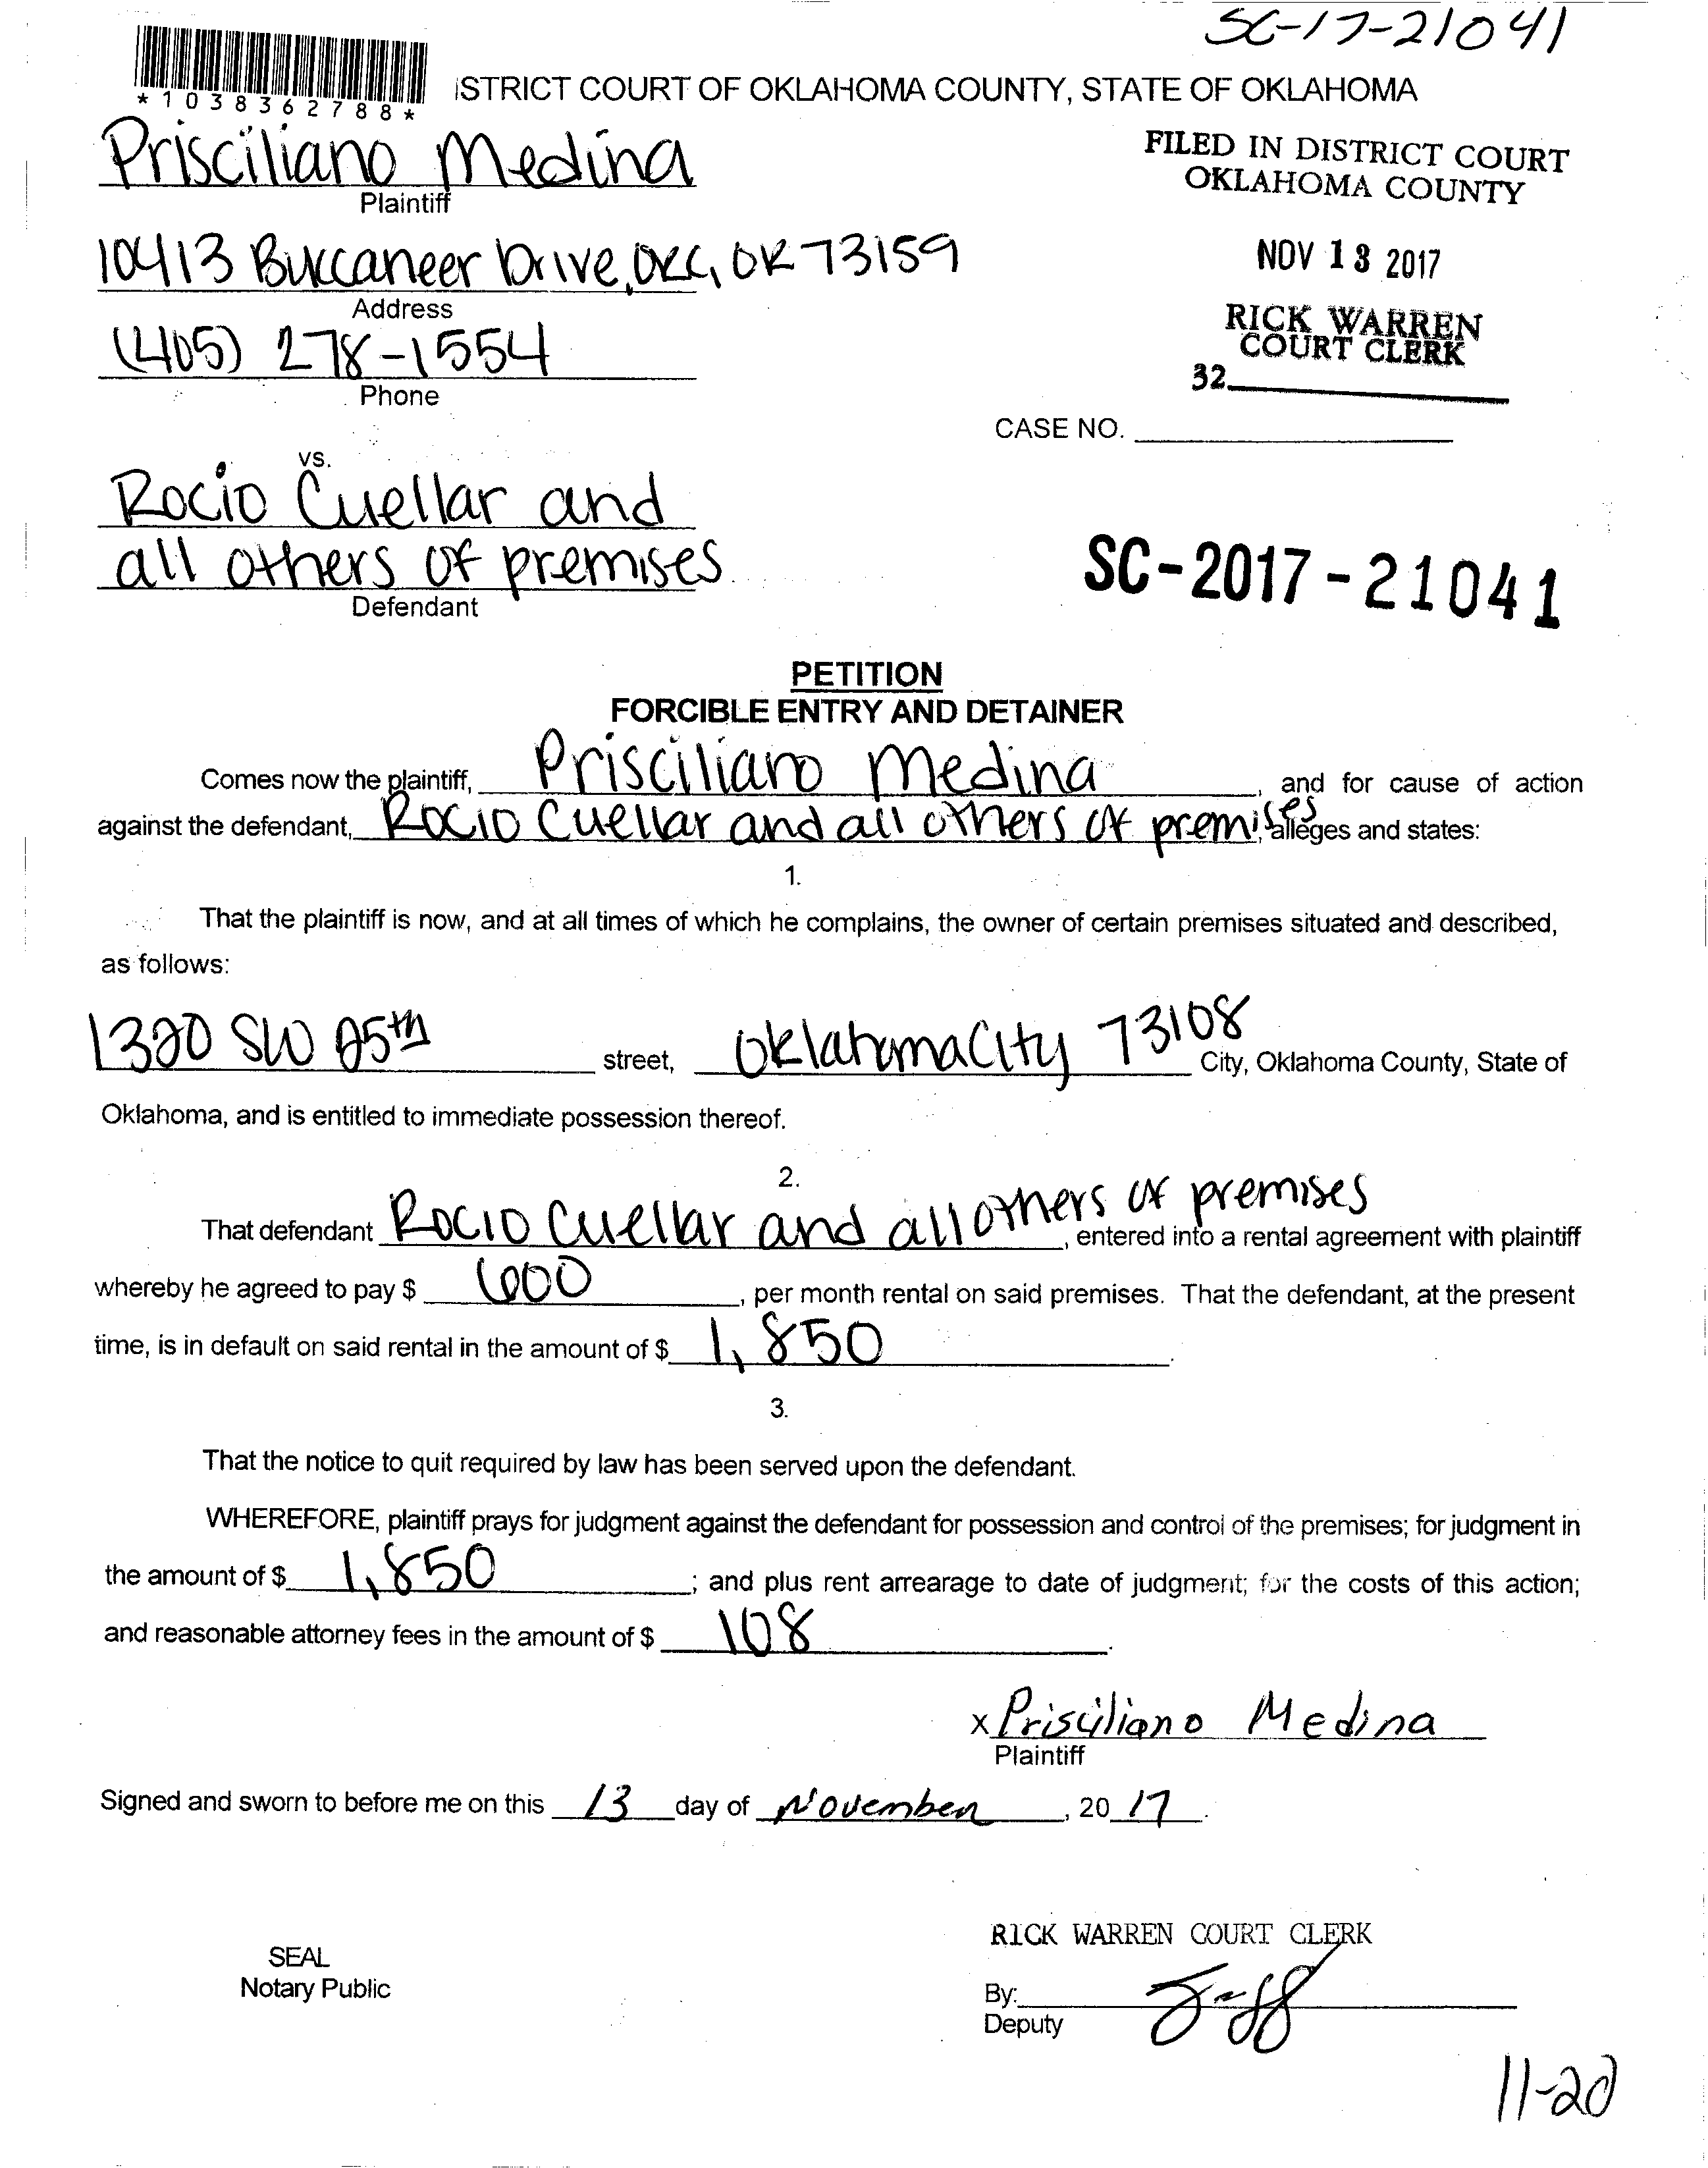 SC-17-21041
*1038362788*
ISTRICT COURT OF OKLAHOMA COUNTY, STATE OF OKLAHOMA
Prisciliano Medina
Plaintiff
FILED IN DISTRICT COURT
OKLAHOMA COUNTY
10413 Buccaneer Drive, OKC, OK 73159
Address
NOV 13 2017
(405) 278-1554
Phone
RICK WARREN
COURT CLERK
32
CASE NO.
vs.
Rocio Cuellar and
all others of premises
Defendant
SC-2017-21041
PETITION
FORCIBLE ENTRY AND DETAINER
Comes now the plaintiff, Prisciliano Medina, and for cause of action
against the defendant, Rocio Cuellar and all others of premises, alleges and states:
1.
That the plaintiff is now, and at all times of which he complains, the owner of certain premises situated and described,
as follows:
1320 SW 25th street, Oklahoma City 73108 City, Oklahoma County, State of
Oklahoma, and is entitled to immediate possession thereof.
2.
That defendant Rocio Cuellar and all others of premises, entered into a rental agreement with plaintiff
whereby he agreed to pay $ 600, per month rental on said premises. That the defendant, at the present
time, is in default on said rental in the amount of $ 1,850.
3.
That the notice to quit required by law has been served upon the defendant.
WHEREFORE, plaintiff prays for judgment against the defendant for possession and control of the premises; for judgment in
the amount of $ 1,850; and plus rent arrearage to date of judgment; for the costs of this action;
and reasonable attorney fees in the amount of $ 108.
x Prisciliano Medina
Plaintiff
Signed and sworn to before me on this 13 day of November, 20 17.
RICK WARREN COURT CLERK
SEAL
Notary Public
By:
Deputy
11-20